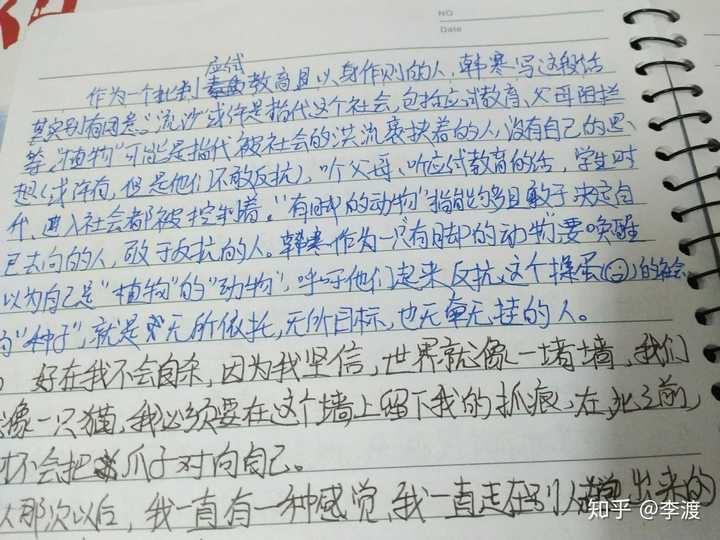 NO
Date
应试
作为一个批判教育且以身作则的人,韩寒写这段话
其实别有用意。"流沙"或许是指代这个社会,包括应试教育、父母阻拦
等。"植物"可能是指代被社会的洪流裹挟着的人,没有自己的思
想(或许有,但是他们不敢反抗),听父母、听应试教育的话,学生时
代、进入社会都被控制着。"有脚的动物"指能够且敢于决定自
己去向的人,敢于反抗的人。韩寒作为一只"有脚的动物"要唤醒
以为自己是"植物"的"动物",呼吁他们起来反抗这个操蛋()的社会
的"种子",就是无所依托,无所目标,也无牵无挂的人。
好在我不会自杀,因为我坚信,世界就像一堵墙,我们
像一只猫,我必须要在这个墙上留下我的抓痕,在死之前,
才不会把爪子对向自己。
从那次以后,我一直有一种感觉,我一直走在别人出来的
知乎 @李渡